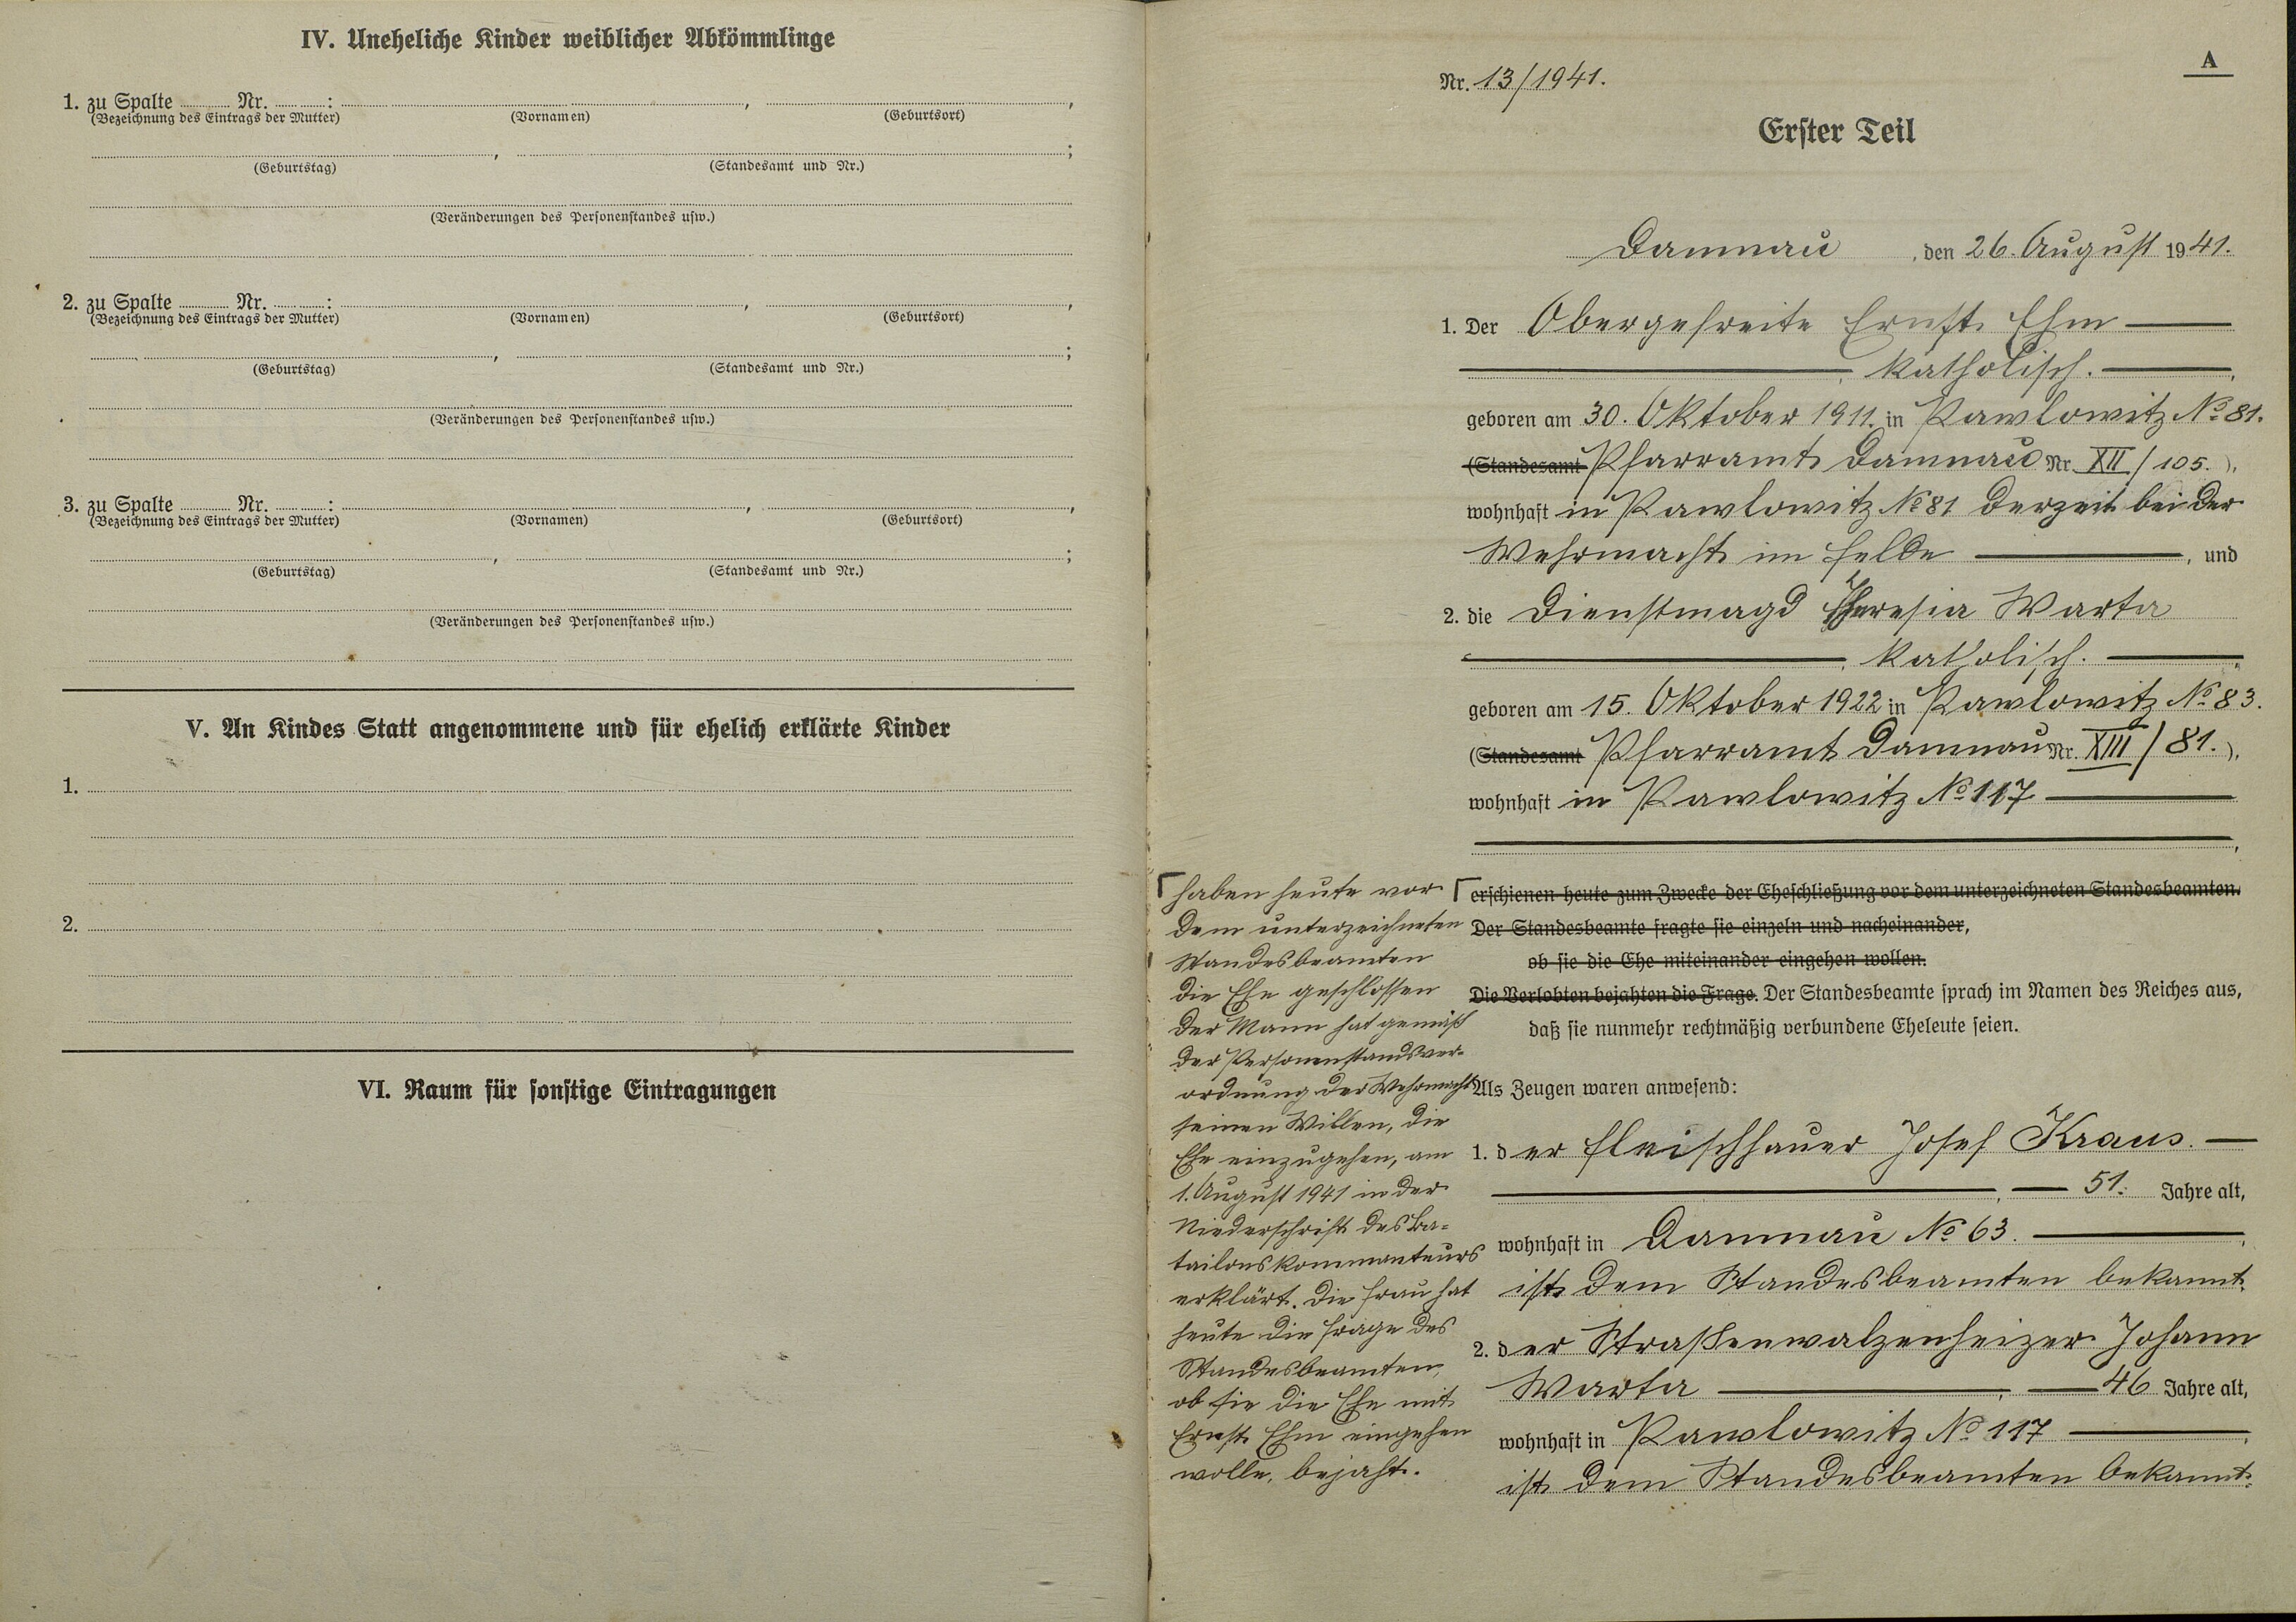 IV. Uneheliche Kinder weiblicher Abkömmlinge
1. zu Spalte Nr. : , ,
(Bezeichnung des Eintrags der Mutter) (Vornamen) (Geburtsort)
, ;
(Geburtstag) (Standesamt und Nr.)
(Veränderungen des Personenstandes usw.)
2. zu Spalte Nr. : , ,
(Bezeichnung des Eintrags der Mutter) (Vornamen) (Geburtsort)
, ;
(Geburtstag) (Standesamt und Nr.)
(Veränderungen des Personenstandes usw.)
3. zu Spalte Nr. : , ,
(Bezeichnung des Eintrags der Mutter) (Vornamen) (Geburtsort)
, ;
(Geburtstag) (Standesamt und Nr.)
(Veränderungen des Personenstandes usw.)
V. An Kindes Statt angenommene und für ehelich erklärte Kinder
1.
2.
VI. Raum für sonstige Eintragungen
A
Nr. 13/1941.
Erster Teil
Damnau, den 26. August 1941.
1. Der Obergefreite Ernst Ehm
, katholisch.,
geboren am 30. Oktober 1911. in Pawlowitz No 81.
(Standesamt Pfarramt Damnau Nr. XII/105.),
wohnhaft in Pawlowitz No 81 derzeit bei der
Wehrmacht im Felde, und
2. die Dienstmagd Theresia Warta
, katholisch.,
geboren am 15. Oktober 1922 in Pawlowitz No 83.
(Standesamt Pfarramt Damnau Nr. XIII/81.),
wohnhaft in Pawlowitz No 117
,
erschienen heute zum Zwecke der Eheschließung vor dem unterzeichneten Standesbeamten.
Der Standesbeamte fragte sie einzeln und nacheinander,
ob sie die Ehe miteinander eingehen wollen.
Die Verlobten bejahten die Frage. Der Standesbeamte sprach im Namen des Reiches aus,
daß sie nunmehr rechtmäßig verbundene Eheleute seien.
haben heute vor
dem unterzeichneten
Standesbeamten
die Ehe geschlossen
der Mann hat gemäß
der Personenstandsver-
ordnung der Wehrmacht
seinen Willen, die
Ehe einzugehen, am
1. August 1941 in der
Niederschrift des Ba-
tailonskommanteurs
erklärt. Die Frau hat
heute die Frage des
Standesbeamten,
ob sie die Ehe mit
Ernst Ehm eingehen
wolle, bejaht.
Als Zeugen waren anwesend:
1. der Fleischhauer Josef Kraus.
, 51. Jahre alt,
wohnhaft in Damnau No 63.,
ist dem Standesbeamten bekannt.
2. der Straßenwalzenheizer Johann
Warta, 46 Jahre alt,
wohnhaft in Pawlowitz No 117,
ist dem Standesbeamten bekannt.